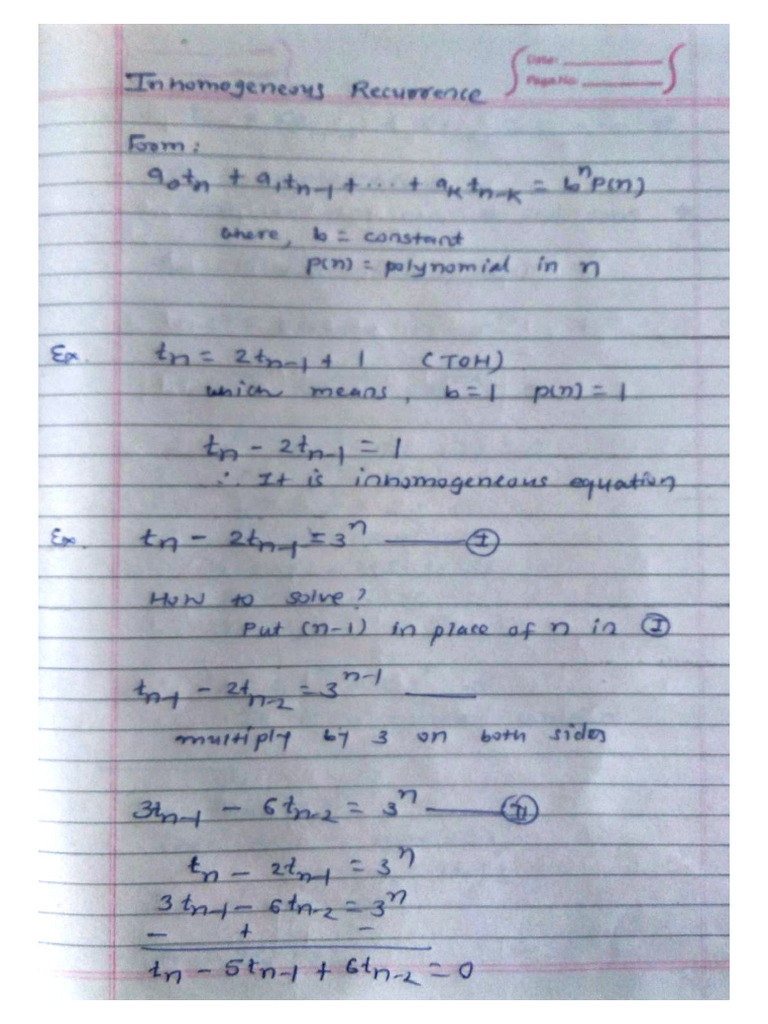 Date:
Page No:
Inhomogeneous Recurrence
Form:
a₀tₙ + a₁tₙ₋₁ + ... + aₖtₙ₋ₖ = bⁿp(n)
where, b = constant
p(n) = polynomial in n
Ex. tₙ = 2tₙ₋₁ + 1 (TOH)
which means, b=1 p(n) = 1
tₙ - 2tₙ₋₁ = 1
∴ It is inhomogeneous equation
Ex. tₙ - 2tₙ₋₁ = 3ⁿ —— Ⓘ
How to solve?
Put (n-1) in place of n in Ⓘ
tₙ₋₁ - 2tₙ₋₂ = 3ⁿ⁻¹ ——
multiply by 3 on both sides
3tₙ₋₁ - 6tₙ₋₂ = 3ⁿ —— (II)
tₙ - 2tₙ₋₁ = 3ⁿ
3tₙ₋₁ - 6tₙ₋₂ = 3ⁿ
- + -
tₙ - 5tₙ₋₁ + 6tₙ₋₂ = 0